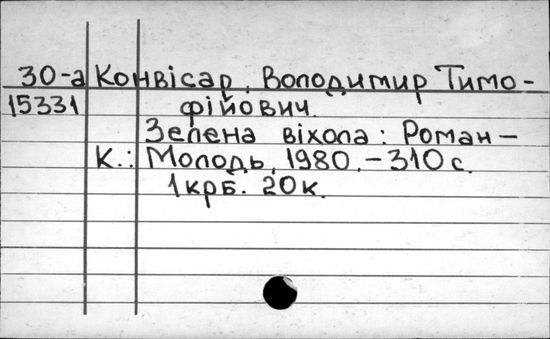 30-а Конвісар, Володимир Тимо-
15331 фійович.
Зелена віхола: Роман –
К.: Молодь, 1980. – 310 с.
1 крб. 20 к.